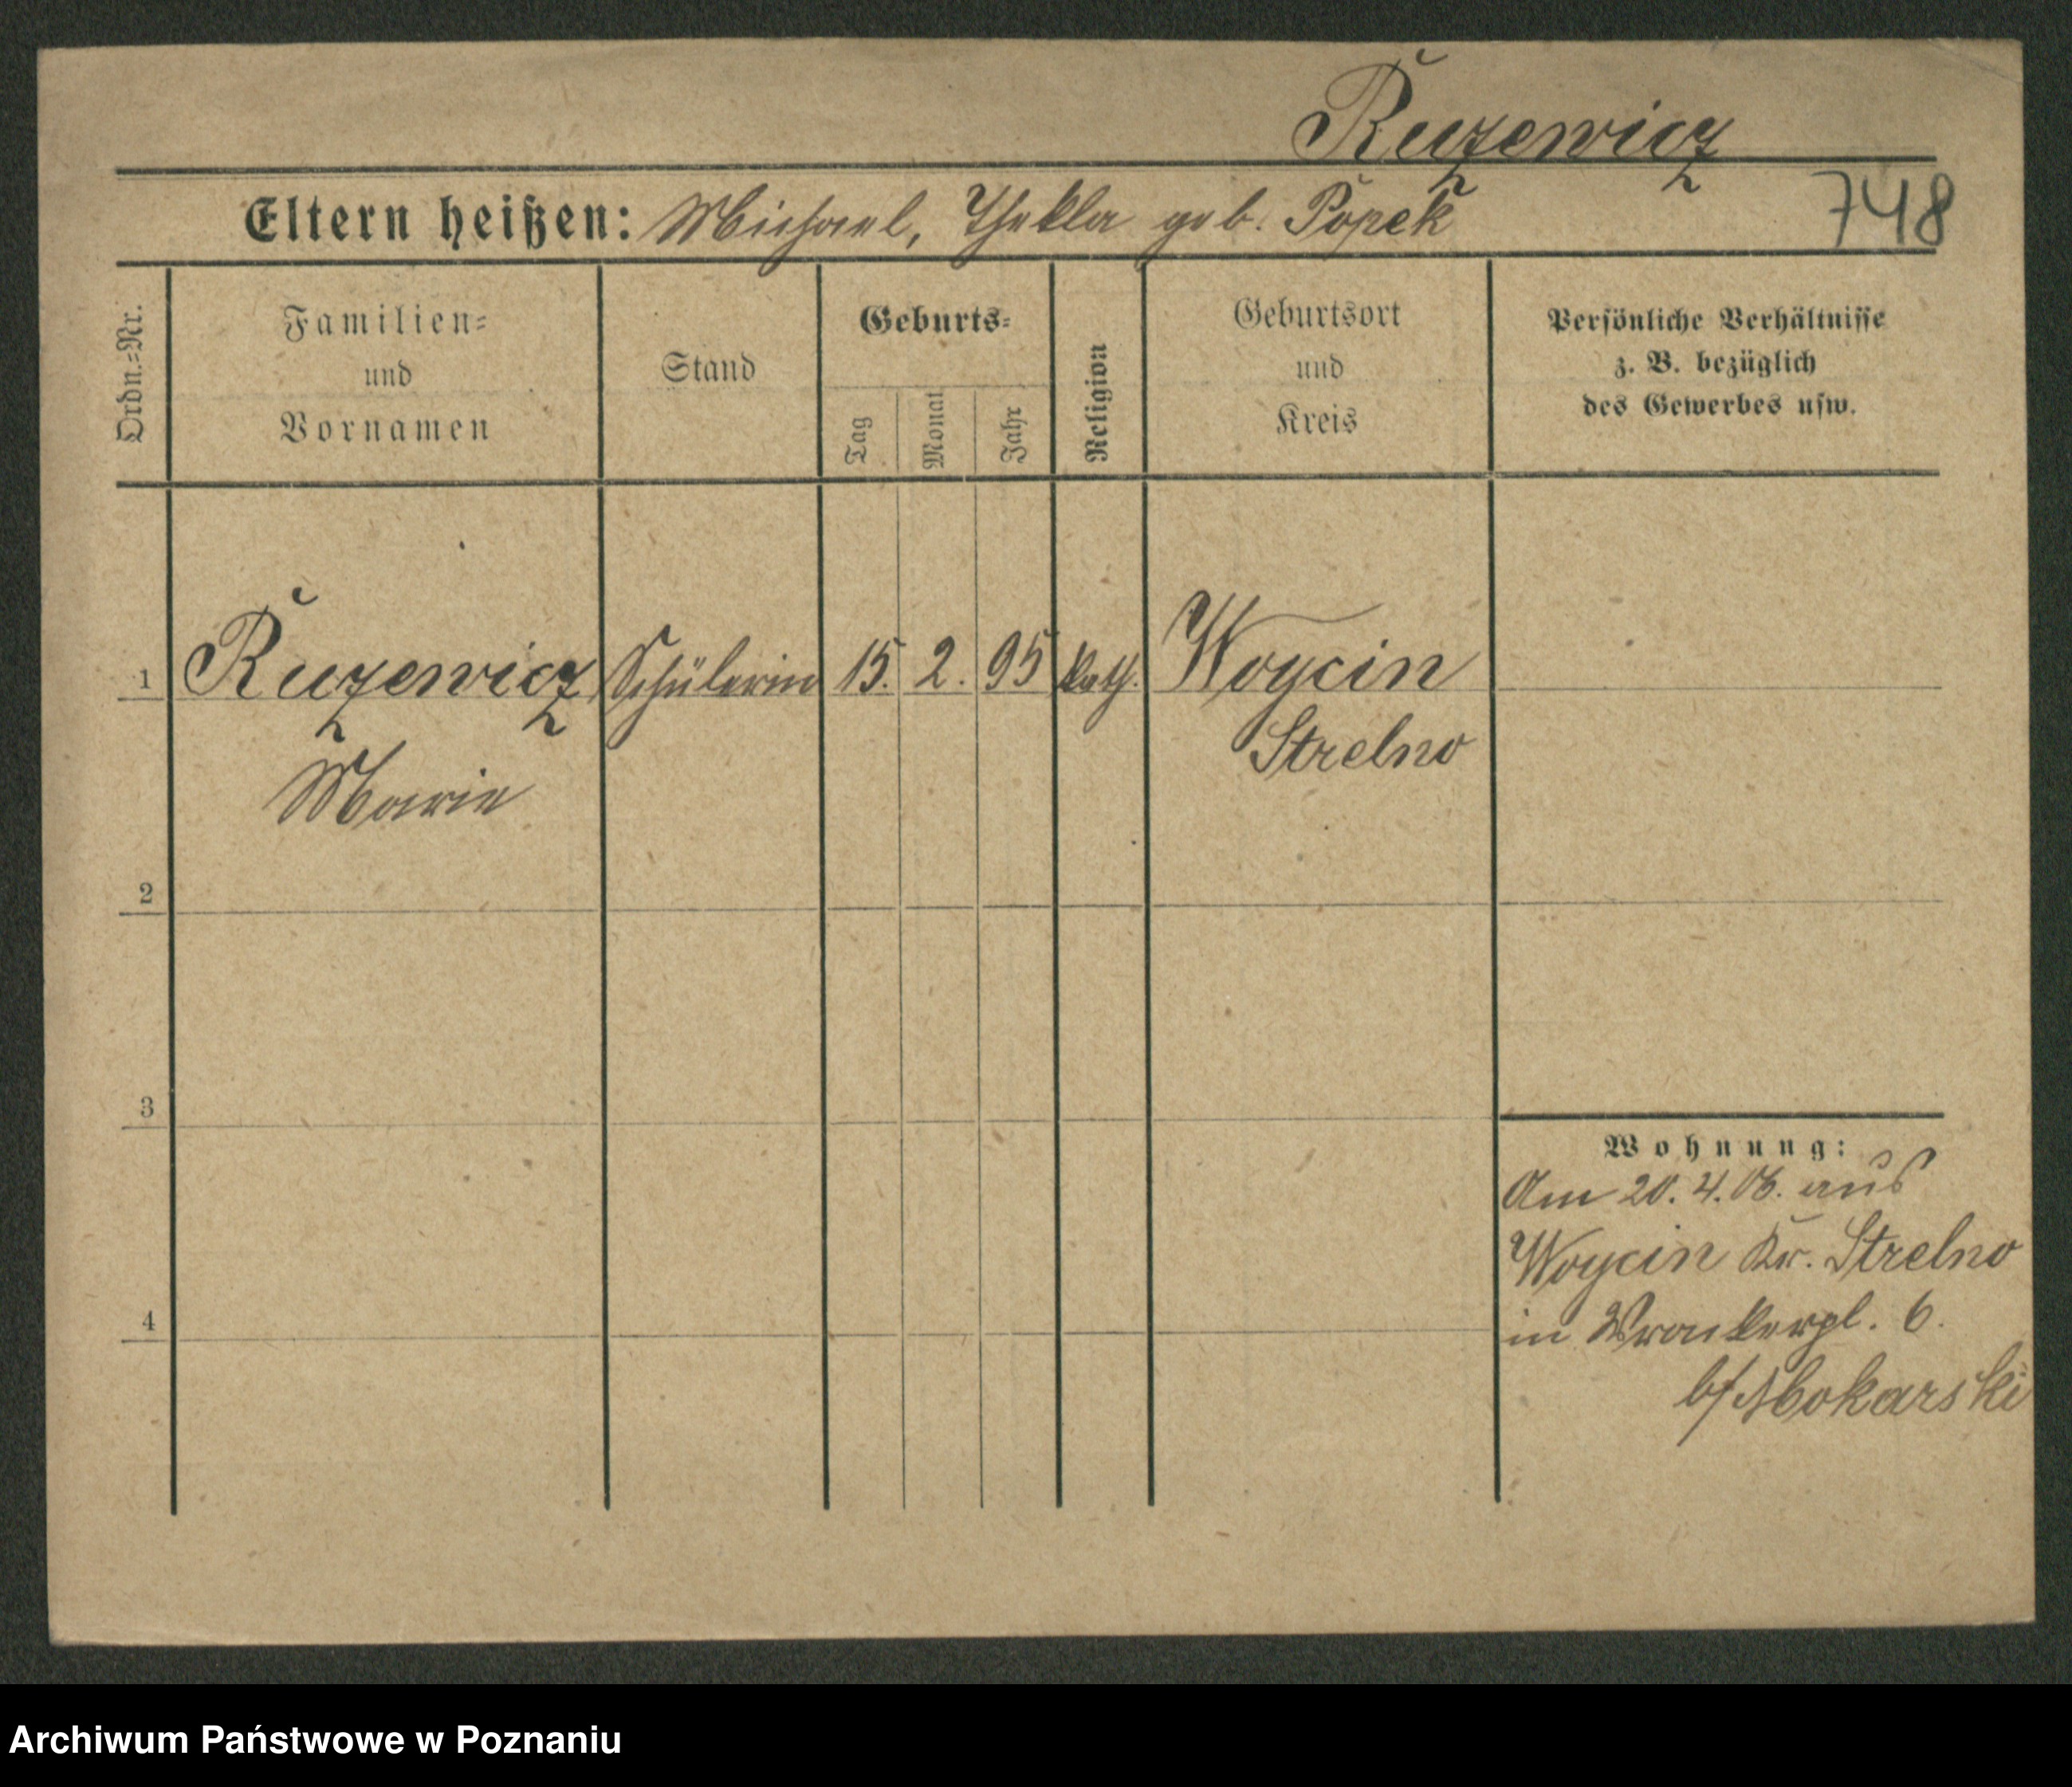 Ruzewicz
748
Eltern heißen: Michael, Thekla geb. Popek
Ordn.=Nr.
Familien=
und
Vornamen
Stand
Geburts=
Tag
Monat
Jahr
Religion
Geburtsort
und
Kreis
Persönliche Verhältnisse
z. B. bezüglich
des Gewerbes usw.
1 Ruzewicz Schülerin 15. 2. 95 kath. Woycin
Strelno
Marie
2
3
Wohnung:
Am 20. 4. 06. aus
Woycin Kr. Strelno
4
in Wronkerpl. 6.
b/ Mokarski
Archiwum Państwowe w Poznaniu